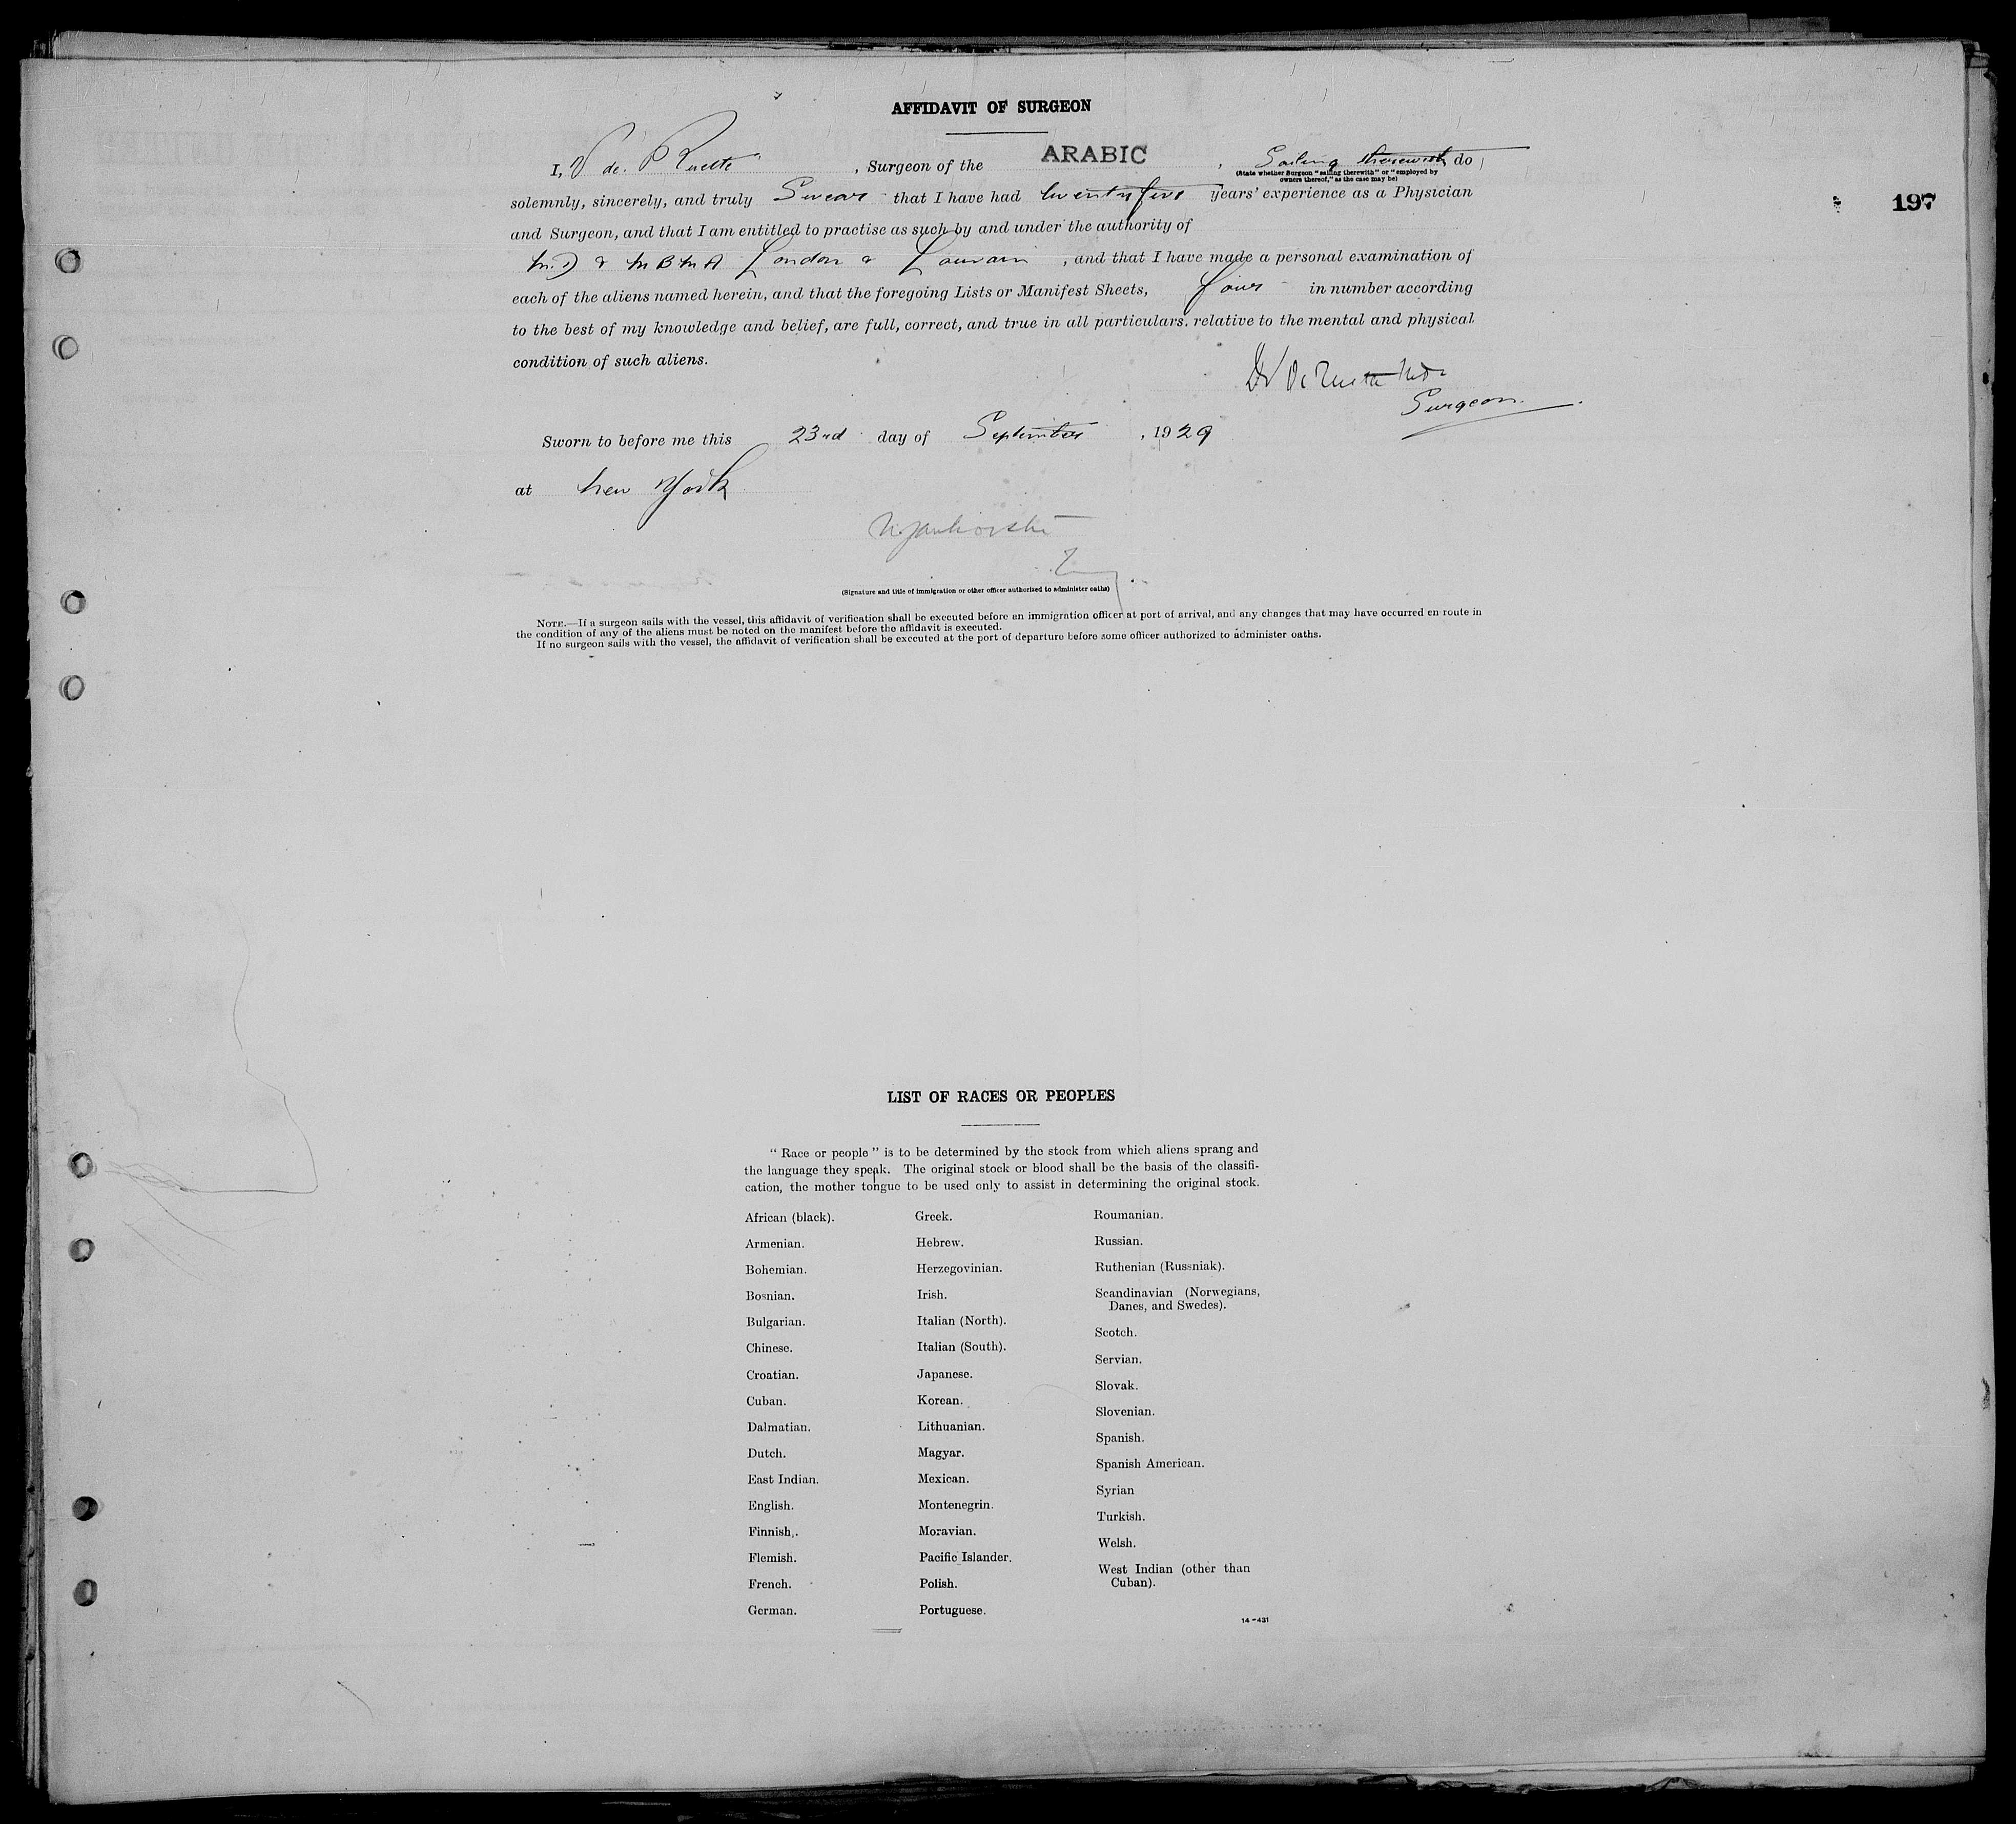 AFFIDAVIT OF SURGEON
I, V de , Surgeon of the ARABIC , Sailing therewith do
(State whether Surgeon "sailing therewith" or "employed by
owners thereof," as the case may be)
solemnly, sincerely, and truly Swear that I have had twenty five years' experience as a Physician
197
and Surgeon, and that I am entitled to practise as such by and under the authority of
M.D & M B M A London & Louvain , and that I have made a personal examination of
each of the aliens named herein, and that the foregoing Lists or Manifest Sheets, four in number according
to the best of my knowledge and belief, are full, correct, and true in all particulars, relative to the mental and physical
condition of such aliens.
Surgeon.
Sworn to before me this 23rd day of September , 1929
at New York
(Signature and title of immigration or other officer authorized to administer oaths)
NOTE.—If a surgeon sails with the vessel, this affidavit of verification shall be executed before an immigration officer at port of arrival, and any changes that may have occurred en route in
the condition of any of the aliens must be noted on the manifest before the affidavit is executed.
If no surgeon sails with the vessel, the affidavit of verification shall be executed at the port of departure before some officer authorized to administer oaths.
LIST OF RACES OR PEOPLES
" Race or people " is to be determined by the stock from which aliens sprang and
the language they speak. The original stock or blood shall be the basis of the classifi-
cation, the mother tongue to be used only to assist in determining the original stock.
African (black).
Armenian.
Bohemian.
Bosnian.
Bulgarian.
Chinese.
Croatian.
Cuban.
Dalmatian.
Dutch.
East Indian.
English.
Finnish.
Flemish.
French.
German.
Greek.
Hebrew.
Herzegovinian.
Irish.
Italian (North).
Italian (South).
Japanese.
Korean.
Lithuanian.
Magyar.
Mexican.
Montenegrin.
Moravian.
Pacific Islander.
Polish.
Portuguese.
Roumanian.
Russian.
Ruthenian (Russniak).
Scandinavian (Norwegians,
Danes, and Swedes).
Scotch.
Servian.
Slovak.
Slovenian.
Spanish.
Spanish American.
Syrian
Turkish.
Welsh.
West Indian (other than
Cuban).
14-431